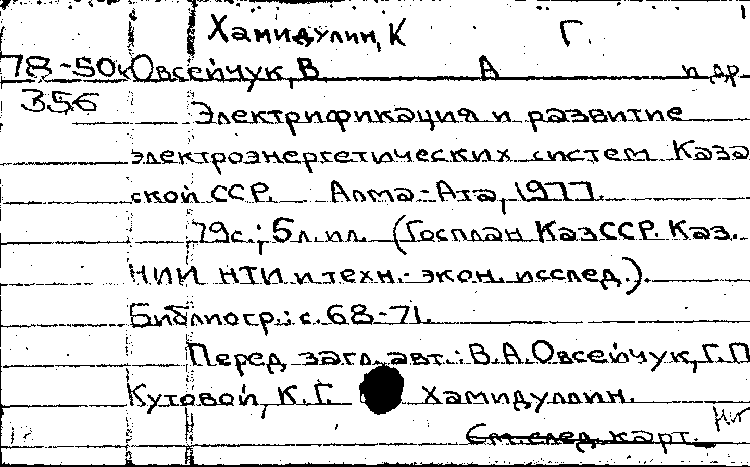 Хамидулин, К Г.
78-50к Овсейчук, В А и др
356
Электрификация и развитие
электроэнергетических систем Каза
ской ССР. Алма-Ата, 1977.
79с.; 5л.ил. (Госплан КазССР. Каз.
НИИ НТИ и техн.-экон. исслед.).
Библиогр.: с. 68-71.
Перед загл. авт.: В.А.Овсейчук, Г.П
Кутовой, К.Г. Хамидуллин.
См.след.карт.